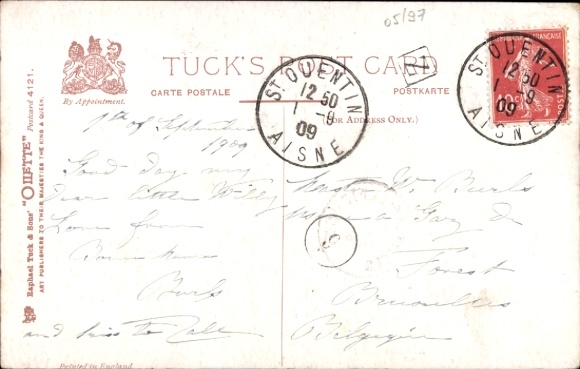 05/97
TUCK'S POST CARD
CARTE POSTALE
POSTKARTE
(FOR ADDRESS ONLY.)
By Appointment.
Raphael Tuck & Sons' "OILETTE" Postcard 4121.
ART PUBLISHERS TO THEIR MAJESTIES THE KING & QUEEN.
ST QUENTIN
12 50
1 -9
09
AISNE
ST QUENTIN
12 50
1 -9
09
AISNE
1st of September
1909
Good Day my
Dear little Willy
Love from
and kiss to all
Master W. Burls
Forest
Bruxelles
Belgique
Printed in England.